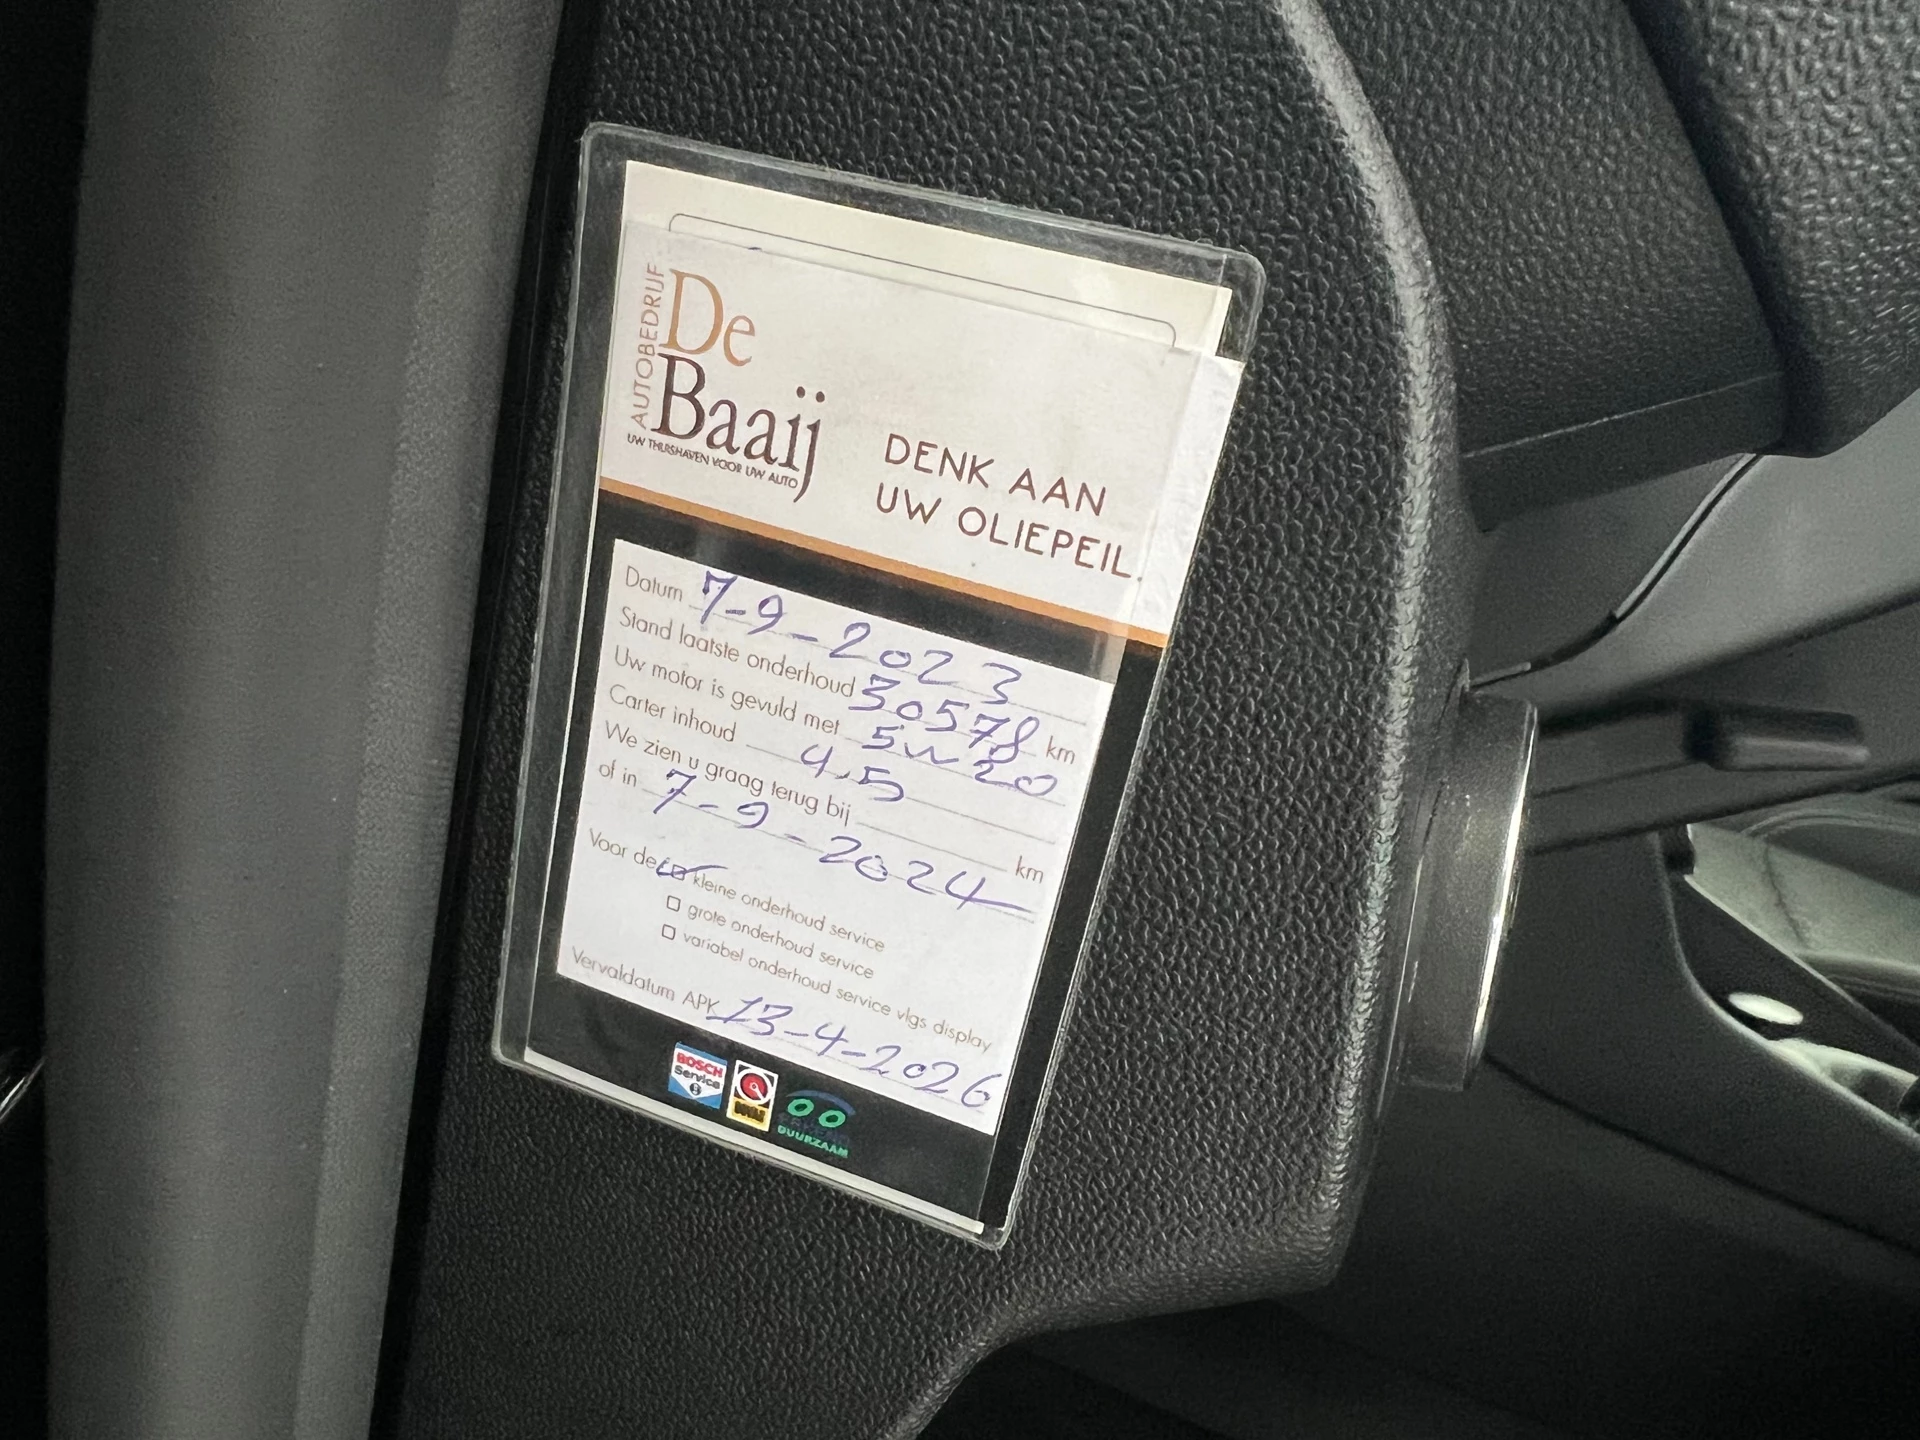 AUTOBEDRIJF
De
Baaij
UW THUISHAVEN VOOR UW AUTO
DENK AAN
UW OLIEPEIL.
Datum 7-9-2023
Stand laatste onderhoud 30578 km
Uw motor is gevuld met 5w20
Carter inhoud 4,5
We zien u graag terug bij km
of in 7-9-2024
Voor de kleine onderhoud service
grote onderhoud service
variabel onderhoud service vlgs display
Vervaldatum APK 13-4-2026
BOSCH
Service
BOVAG
DUURZAAM